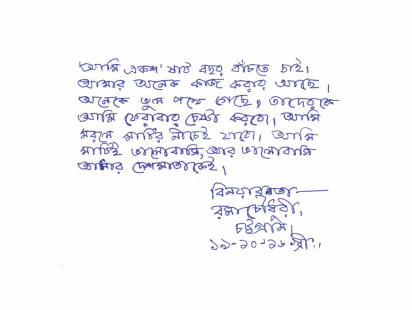 'আমি একশ' ষাট বছর বাঁচতে চাই।
আমার অনেক কাজ করার আছে।
অনেকে ভুল পথে গেছে, তাদেরকে
আমি ফেরাবার চেষ্টা করবো। আমি
মরলে মাটির নীচেই যাবো। আমি
মাটিই ভালোবাসি, আর ভালোবাসি
আমার দেশমাতাকেই।
বিনয়াবনতা—
রমা চৌধুরী,
চট্টগ্রাম।
১৯-১০-১৬ খ্রী:,